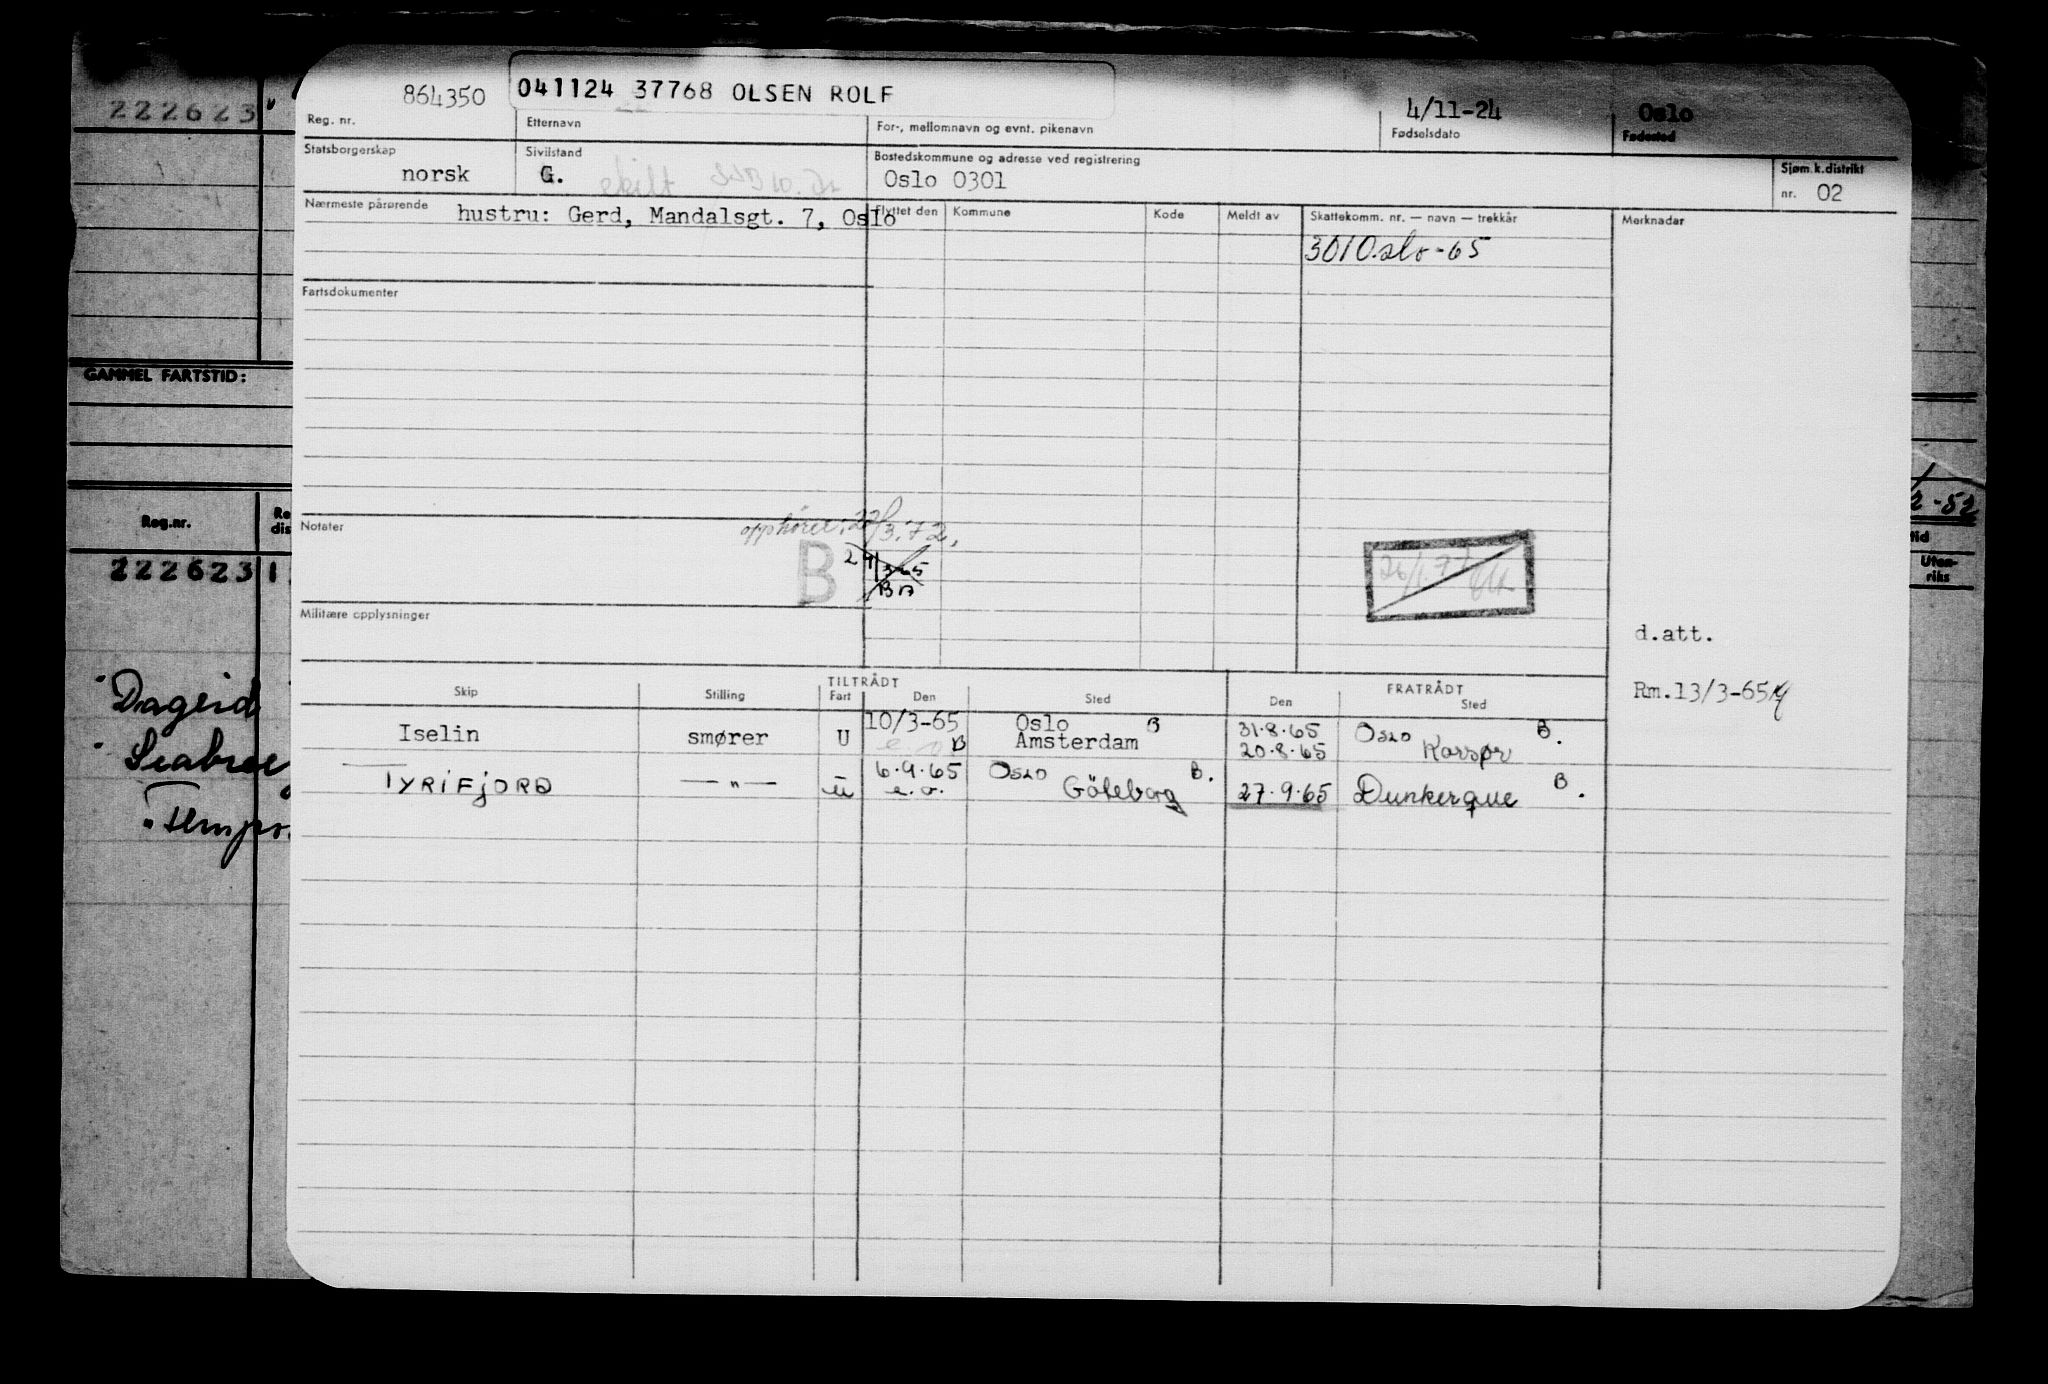 222623
864350 041124 37768 OLSEN ROLF 4/11-24 Oslo
Reg. nr. Etternavn For-, mellomnavn og evnt. pikenavn Fødselsdato Fødested
Statsborgerskap Sivilstand Bostedskommune og adresse ved registrering Sjøm.k.distrikt
norsk G. skilt Oslo 0301 nr. 02
Nærmeste pårørende hustru: Gerd, Mandalsgt. 7, Oslo Flyttet den Kommune Kode Meldt av Skattekomm. nr. — navn — trekkår Merknader
3010.slo-65
Fartsdokumenter
GAMMEL FARTSTID:
Notater opphører: 27/3.72.
2-52
Reg.nr.
Re
dis
tid
Utan-
riks
B 24/3-65
222623 1
Militære opplysninger
d.att.
Rm.13/3-65
TILTRÅDT FRATRÅDT
Skip Stilling Fart Den Sted Den Sted
Iselin smører U 10/3-65 Oslo B 31.8.65 Oslo B.
B Amsterdam 20.8.65 Korsør
TYRIFJORD — " — u 6.9.65 Oslo B.
e.o. Göteborg 27.9.65 Dunkerque B.
Dagrid
"Tempo